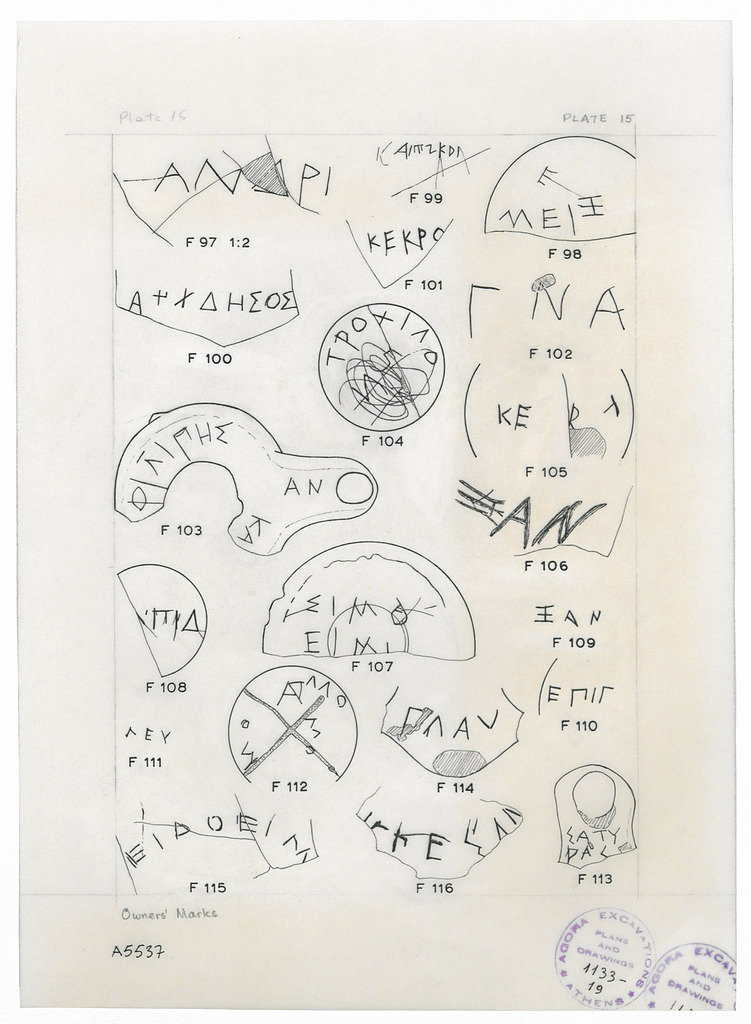 Plate 15
PLATE 15
ΑΝΔΡΙ
F 97 1:2
F 99
ΜΕΙΞ
F 98
ΚΕΚΡΟ
F 101
F 100
Γ Ν Α
F 102
ΤΡΟΧΙΛΟ
F 104
ΚΕ
F 105
ΦΙΛΙΠΗΣ
ΑΝ
ΚΑ
F 103
ΞΑΝ
F 106
ΣΙΜΟ
ΕΙΜΙ
F 107
F 108
ΞΑΝ
F 109
ΕΠΙΓ
F 110
ΛΕΥ
F 111
F 112
ΓΛΑΥ
F 114
ΣΑΤΥ
ΡΑΣ
F 113
F 115
F 116
Owners' Marks
A5537
AGORA EXCAVATIONS
PLANS
AND
DRAWINGS
1133-
19
ATHENS
AGORA EXCAV
PLANS
AND
DRAWINGS